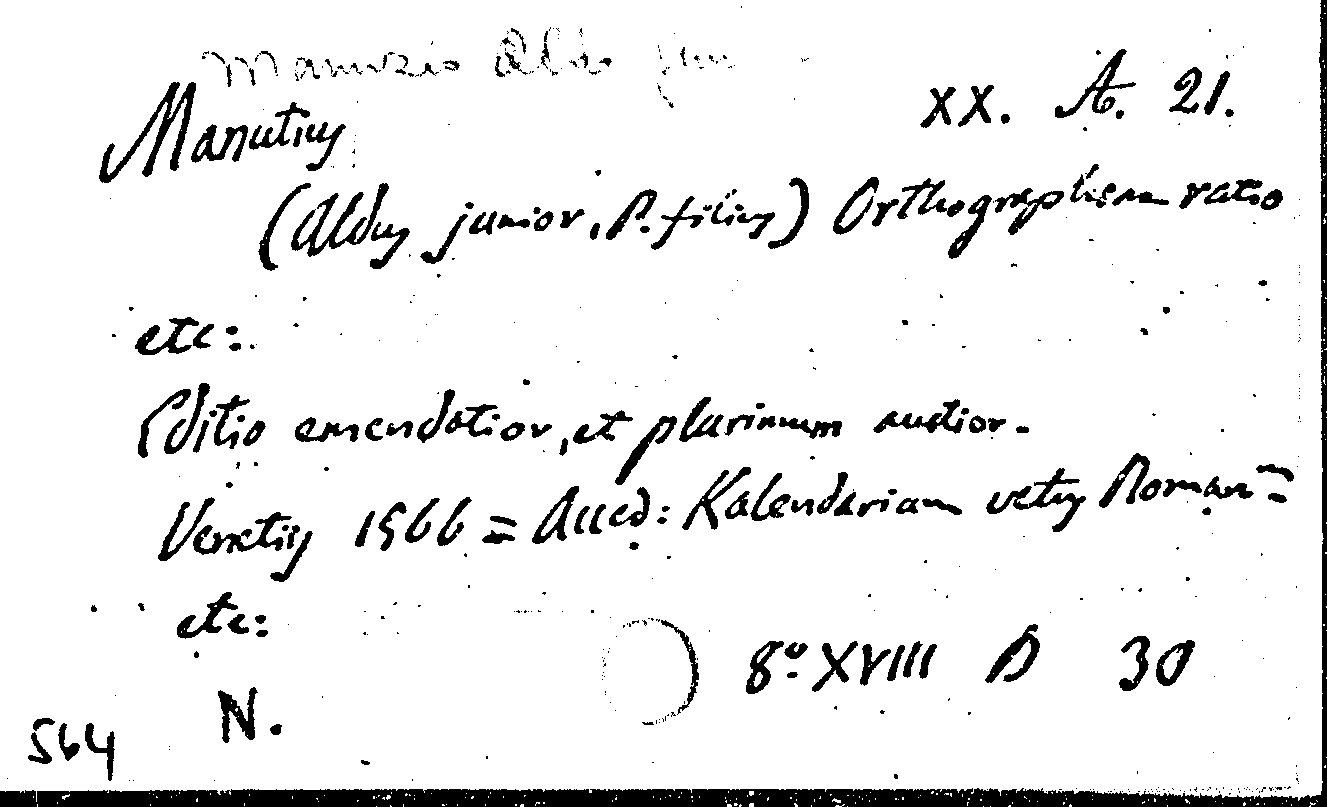 Manuzio Aldo jun
Manutius
XX. A. 21.
(Aldus junior, P. filius) Orthographiam ratio
etc:
Editio emendatior, et plurimum auctior.
Venetiis 1566 = Acced: Kalendarium vetus Roman=
etc:
8º XVIII D 30
N.
564